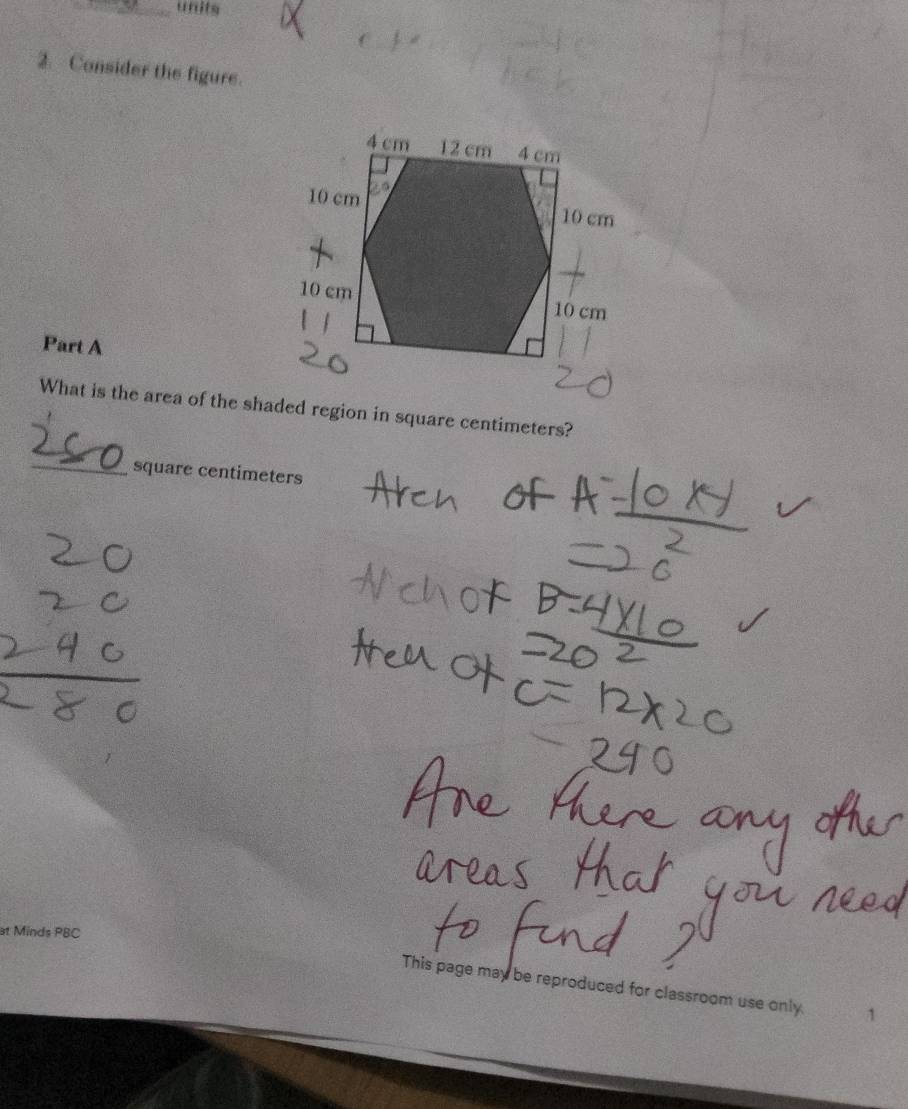 units
2. Consider the figure.
4 cm 12 cm 4 cm
10 cm 20
10 cm
+ +
10 cm
10 cm
11 11
20
20
Part A
What is the area of the shaded region in square centimeters?
280 square centimeters
Area of A = 10 x 4 ✓
2
= 20
20
20
240
280
Area of B = 4 x 10 ✓
2
= 20
Area of C = 12 x 20
240
Are there any other
areas that you need
to find ?
at Minds PBC
This page may be reproduced for classroom use only.
1